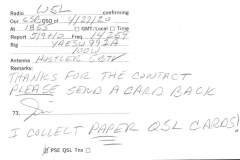 Radio WSL confirming
Our CSB QSO of 4/27/20
At 1855 GMT/Local Time
Report 59+10 Freq 14.267
Rig YAESU 992A
100W
Antenna HUSTLER 6BTV
Remarks:
THANKS FOR THE CONTACT
PLEASE SEND A CARD BACK
73,
I COLLECT PAPER QSL CARDS!
PSE QSL Tnx